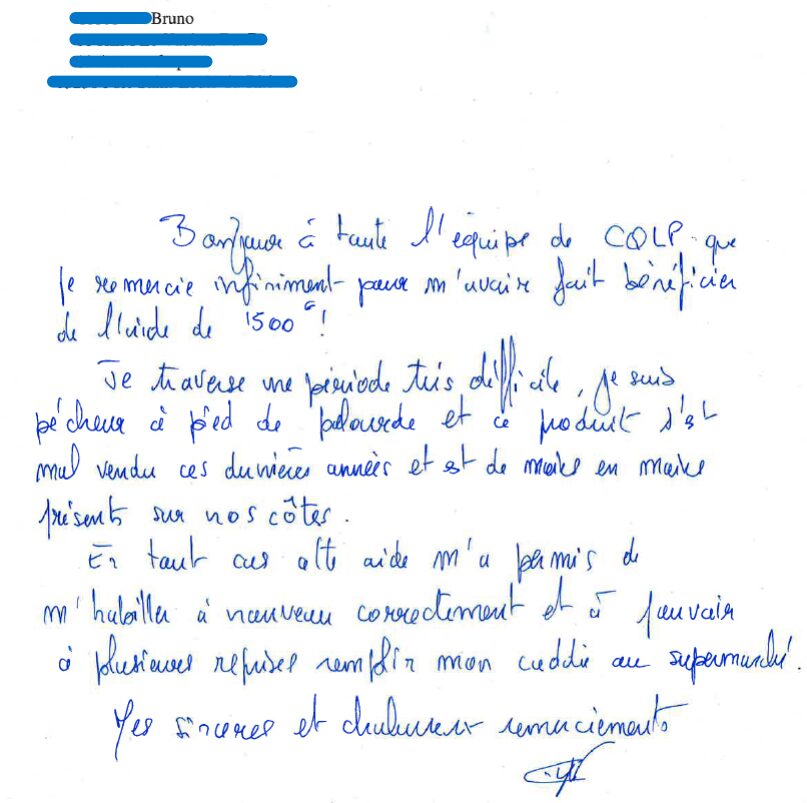 Bruno
Bonjour à toute l'équipe de CQLP que
je remercie infiniment pour m'avoir fait bénéficier
de l'aide de 1500 € !
Je traverse une période très difficile, je suis
pêcheur à pied de palourde et ce produit s'est
mal vendu ces dernières années et est de moins en moins
présents sur nos côtes.
En tout cas cette aide m'a permis de
m'habiller à nouveau correctement et à pouvoir
à plusieurs reprises remplir mon caddie au supermarché.
Mes sincères et chaleureux remerciements